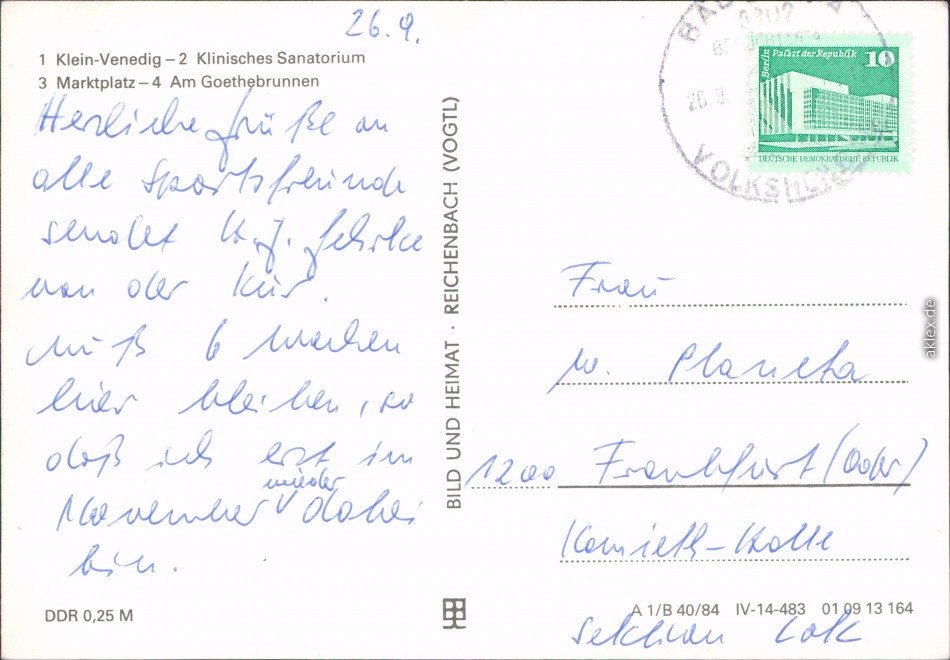 26.9.
1 Klein-Venedig – 2 Klinisches Sanatorium
3 Marktplatz – 4 Am Goethebrunnen
Herzliche Grüße an
alle Sportsfreunde
sendet
von der Kur.
Muß 6 Wochen
hier bleiben, so
daß ich erst im
November wieder daheim
bin.
DDR 0,25 M
BILD UND HEIMAT · REICHENBACH (VOGTL)
BAD
VOLKSHEILBAD
Berlin Palast der Republik 10
DEUTSCHE DEMOKRATISCHE REPUBLIK
Frau
M. Planeta
1200 Frankfurt (Oder)
Halle
A 1/B 40/84 IV-14-483 01 09 13 164
Sektion
aklex.de